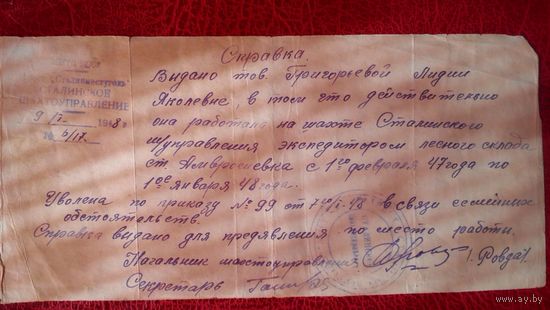 Справка.
"Сталинуголь"
СТАЛИНСКОЕ
ШАХТОУПРАВЛЕНИЕ
9/I 1948 г
№ 6/17
Выдано тов. Григорьевой Лидии
Яколевне, в том что действительно
она работала на шахте Сталинского
ш/управления экспедитором лесного склада
ст. Амвросиевка с 1го февраля 47 года по
1ое января 48 года.
Уволена по приказу № 99 от 7го/I-48 в связи семейних
обстоятельств.
Справка выдано для предявления по место работи.
Начальник шахтоуправления /Ровда/.
Секретарь
www.ay.by